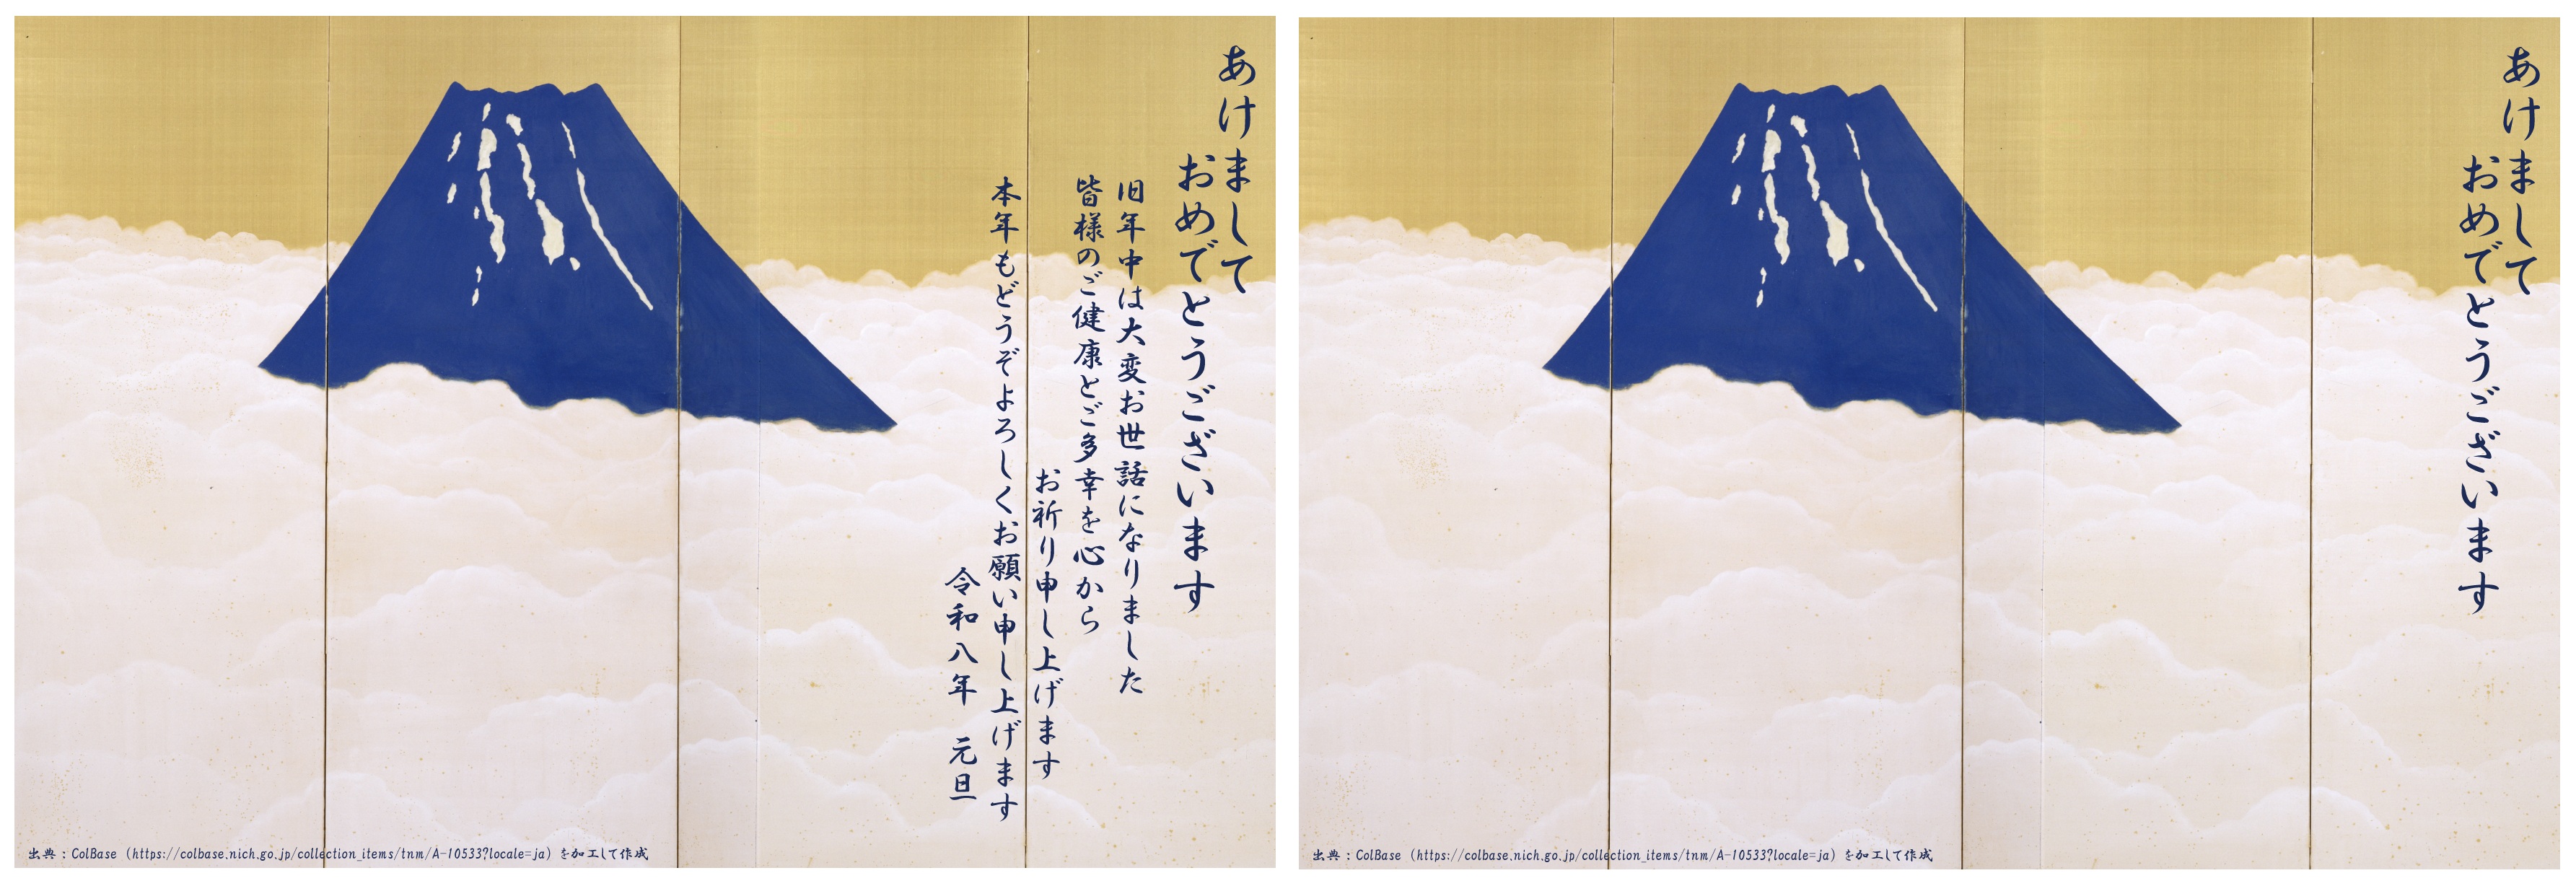 あけまして
おめでとうございます
旧年中は大変お世話になりました
皆様のご健康とご多幸を心から
お祈り申し上げます
本年もどうぞよろしくお願い申し上げます
令和八年 元旦
出典：ColBase (https://colbase.nich.go.jp/collection_items/tnm/A-10533?locale=ja) を加工して作成
あけまして
おめでとうございます
出典：ColBase (https://colbase.nich.go.jp/collection_items/tnm/A-10533?locale=ja) を加工して作成